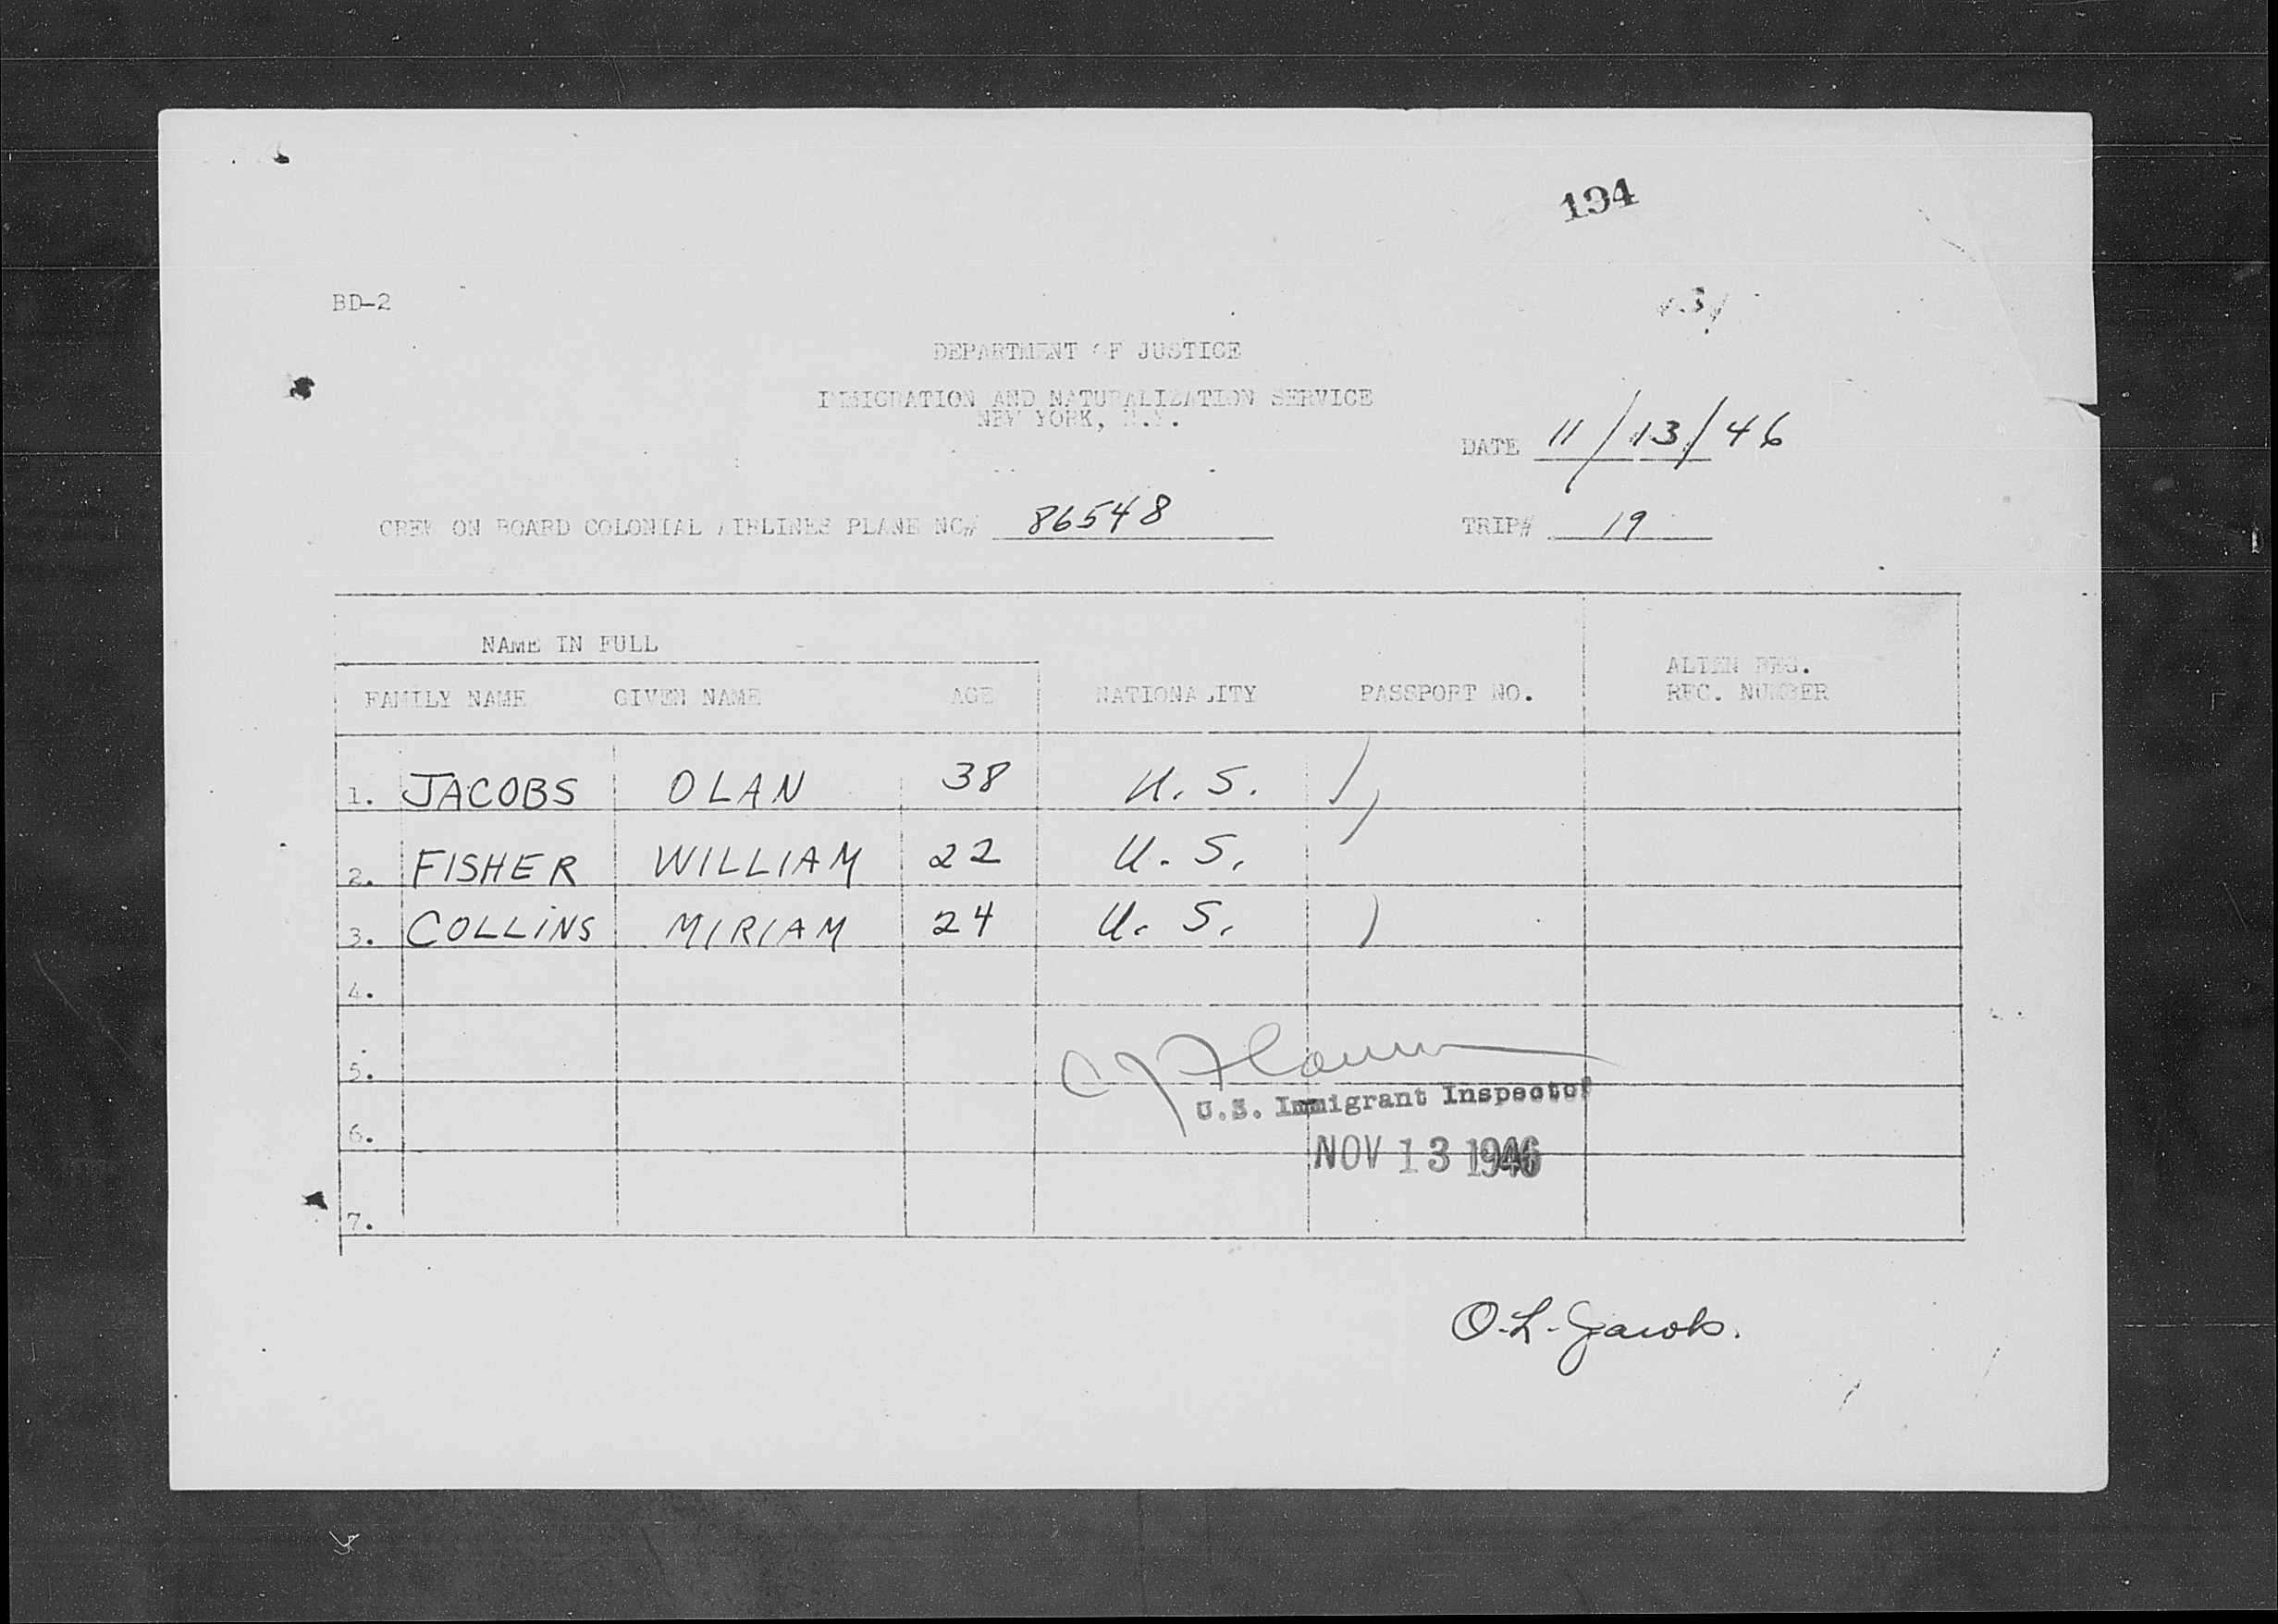 194
BD-2
DEPARTMENT OF JUSTICE
IMMIGRATION AND NATURALIZATION SERVICE
NEW YORK, N.Y.
DATE 11/13/46
CREW ON BOARD COLONIAL AIRLINES PLANE NC# 86548 TRIP# 19
NAME IN FULL
ALIEN REG.
FAMILY NAME GIVEN NAME AGE NATIONALITY PASSPORT NO. REC. NUMBER
1. JACOBS OLAN 38 U.S.
2. FISHER WILLIAM 22 U.S.
3. COLLINS MIRIAM 24 U.S.
4.
5.
U.S. Immigrant Inspector
6.
NOV 13 1946
7.
O.L. Jacobs.